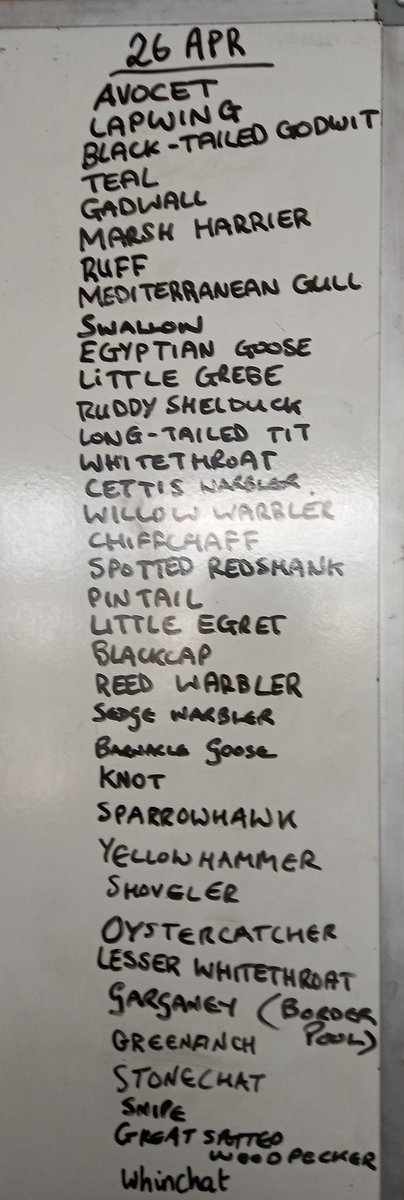 26 APR
AVOCET
LAPWING
BLACK-TAILED GODWIT
TEAL
GADWALL
MARSH HARRIER
RUFF
MEDITERRANEAN GULL
SWALLOW
EGYPTIAN GOOSE
LITTLE GREBE
RUDDY SHELDUCK
LONG-TAILED TIT
WHITETHROAT
CETTIS WARBLER
WILLOW WARBLER
CHIFFCHAFF
SPOTTED REDSHANK
PINTAIL
LITTLE EGRET
BLACKCAP
REED WARBLER
SEDGE WARBLER
BARNACLE GOOSE
KNOT
SPARROWHAWK
YELLOWHAMMER
SHOVELER
OYSTERCATCHER
LESSER WHITETHROAT
GARGANEY (BORDER
POOL)
GREENFINCH
STONECHAT
SNIPE
GREAT SPOTTED
WOODPECKER
Whinchat